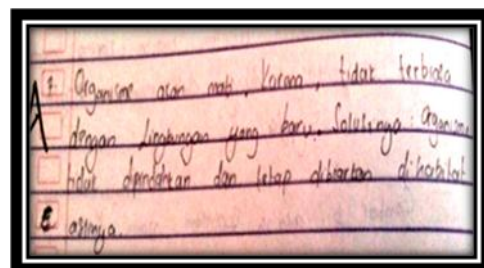 7. Organisme akan mati. Karena, tidak terbiasa
dengan Lingkungan yang baru. Solusinya: Organisme
tidak dipindahkan dan tetap dibiarkan dihabitat
aslinya.